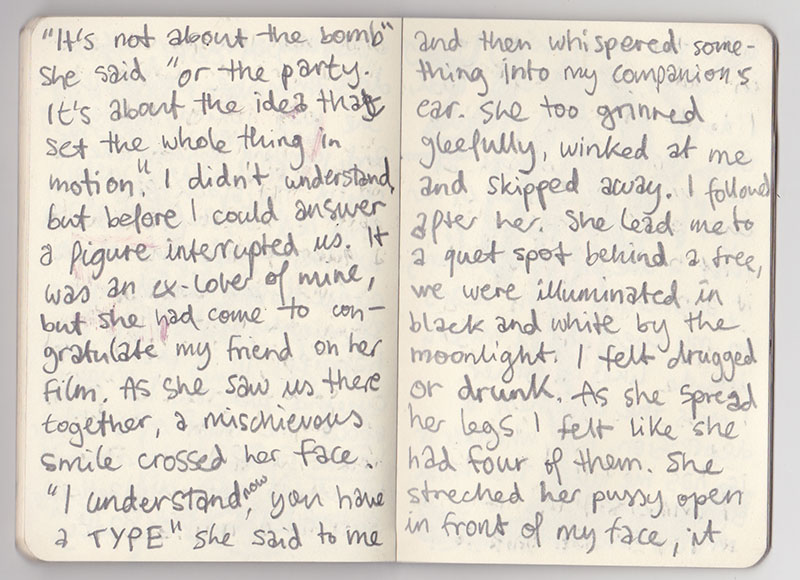 "It's not about the bomb"
she said "or the party.
It's about the idea that
set the whole thing in
motion." I didn't understand,
but before I could answer
a figure interrupted us. It
was an ex-lover of mine,
but she had come to con-
gratulate my friend on her
film. As she saw us there
together, a mischievous
smile crossed her face.
"I understand, now you have
a TYPE" she said to me
and then whispered some-
thing into my companion's
ear. She too grinned
gleefully, winked at me
and skipped away. I followed
after her. She lead me to
a quet spot behind a tree,
we were illuminated in
black and white by the
moonlight. I felt drugged
or drunk. As she spread
her legs I felt like she
had four of them. She
streched her pussy open
in front of my face, it